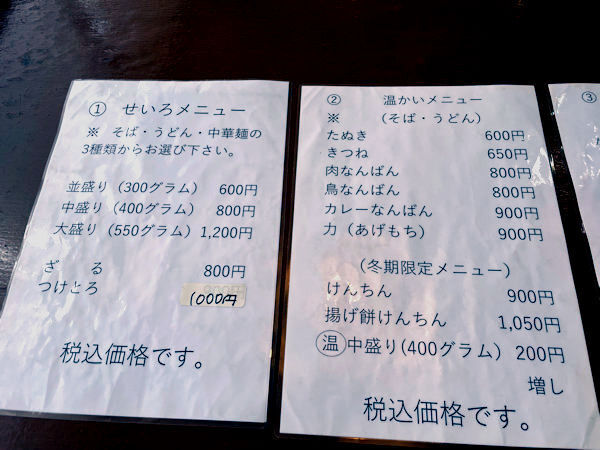 ① せいろメニュー
※ そば・うどん・中華麺の
3種類からお選び下さい。
並盛り（300グラム） 600円
中盛り（400グラム） 800円
大盛り（550グラム）1,200円
ざる 800円
つけとろ 1000円
税込価格です。
② 温かいメニュー
※ （そば・うどん）
たぬき 600円
きつね 650円
肉なんばん 800円
鳥なんばん 800円
カレーなんばん 900円
力（あげもち） 900円
（冬期限定メニュー）
けんちん 900円
揚げ餅けんちん 1,050円
温 中盛り(400グラム) 200円
増し
税込価格です。
③